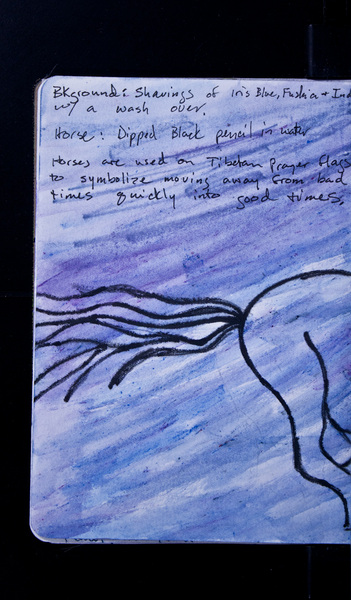 BKground: Shavings of Iris Blue, Fushia + Ind
w/ a wash over.
Horse: Dipped Black pencil in water
Horses are used on Tibetan Prayer flags
to symbolize moving away from bad
times quickly into good times.